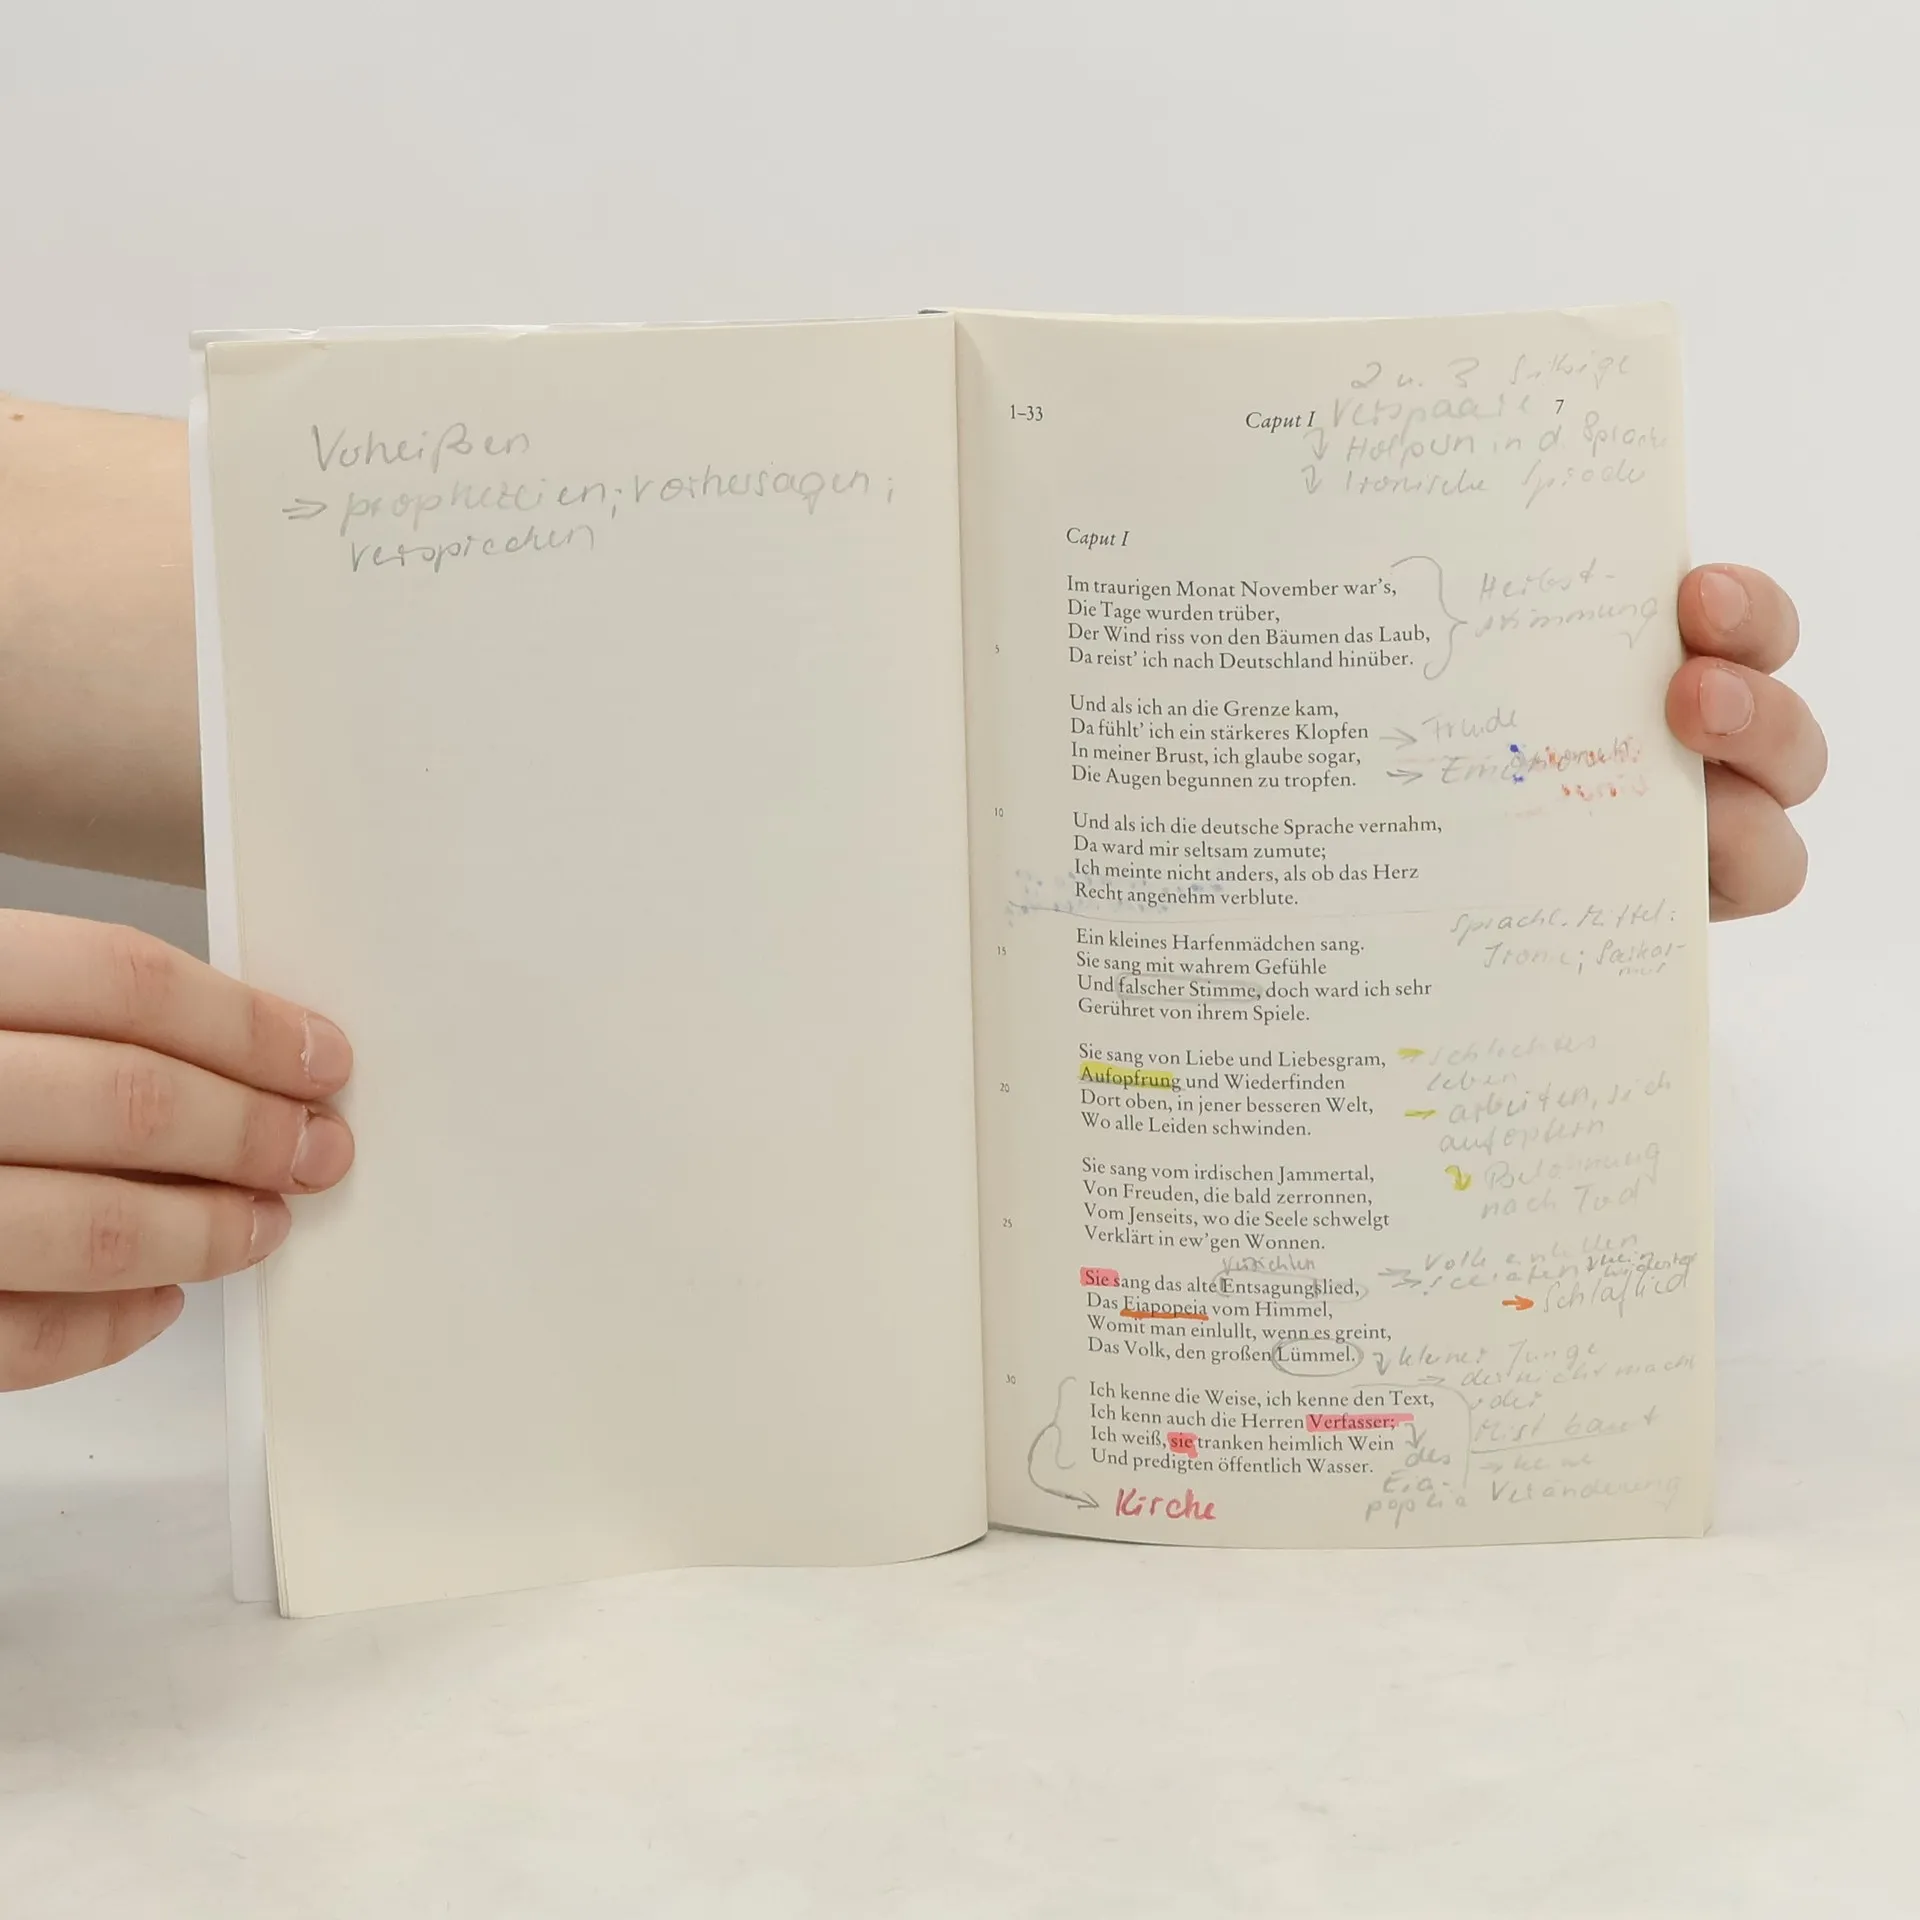 Verheißen
=> prophezeien; vorhersagen;
versprechen
1–33
Caput I
7
2 u. 3 Silbige
Verspaare
Holpern in d. Sprache
Ironische
Caput I
Im traurigen Monat November war's,
Die Tage wurden trüber,
Der Wind riss von den Bäumen das Laub,
5
Da reist' ich nach Deutschland hinüber.
Herbst-
stimmung
Und als ich an die Grenze kam,
Da fühlt' ich ein stärkeres Klopfen
→ Freude
In meiner Brust, ich glaube sogar,
Die Augen begunnen zu tropfen.
10
Und als ich die deutsche Sprache vernahm,
Da ward mir seltsam zumute;
Ich meinte nicht anders, als ob das Herz
Recht angenehm verblute.
Sprachl. Mittel:
Ironie; Sarkas-
mus
15
Ein kleines Harfenmädchen sang.
Sie sang mit wahrem Gefühle
Und falscher Stimme, doch ward ich sehr
Gerühret von ihrem Spiele.
Sie sang von Liebe und Liebesgram,
→ schlechtes
Leben
20
Aufopfrung und Wiederfinden
Dort oben, in jener besseren Welt,
→ arbeiten, sich
aufopfern
Wo alle Leiden schwinden.
Belohnung
nach Tod
Sie sang vom irdischen Jammertal,
Von Freuden, die bald zerronnen,
25
Vom Jenseits, wo die Seele schwelgt
Verklärt in ew'gen Wonnen.
Verzichten
Sie sang das alte Entsagungslied,
Volk
Das Eiapopeia vom Himmel,
→ Schlaflied
Womit man einlullt, wenn es greint,
Das Volk, den großen Lümmel.
kleiner Junge
→ der nicht macht
oder
Mist baut
→ keine
Veränderung
30
Ich kenne die Weise, ich kenne den Text,
Ich kenn auch die Herren Verfasser;
Ich weiß, sie tranken heimlich Wein
Und predigten öffentlich Wasser.
des
Eia-
popeia
→ Kirche